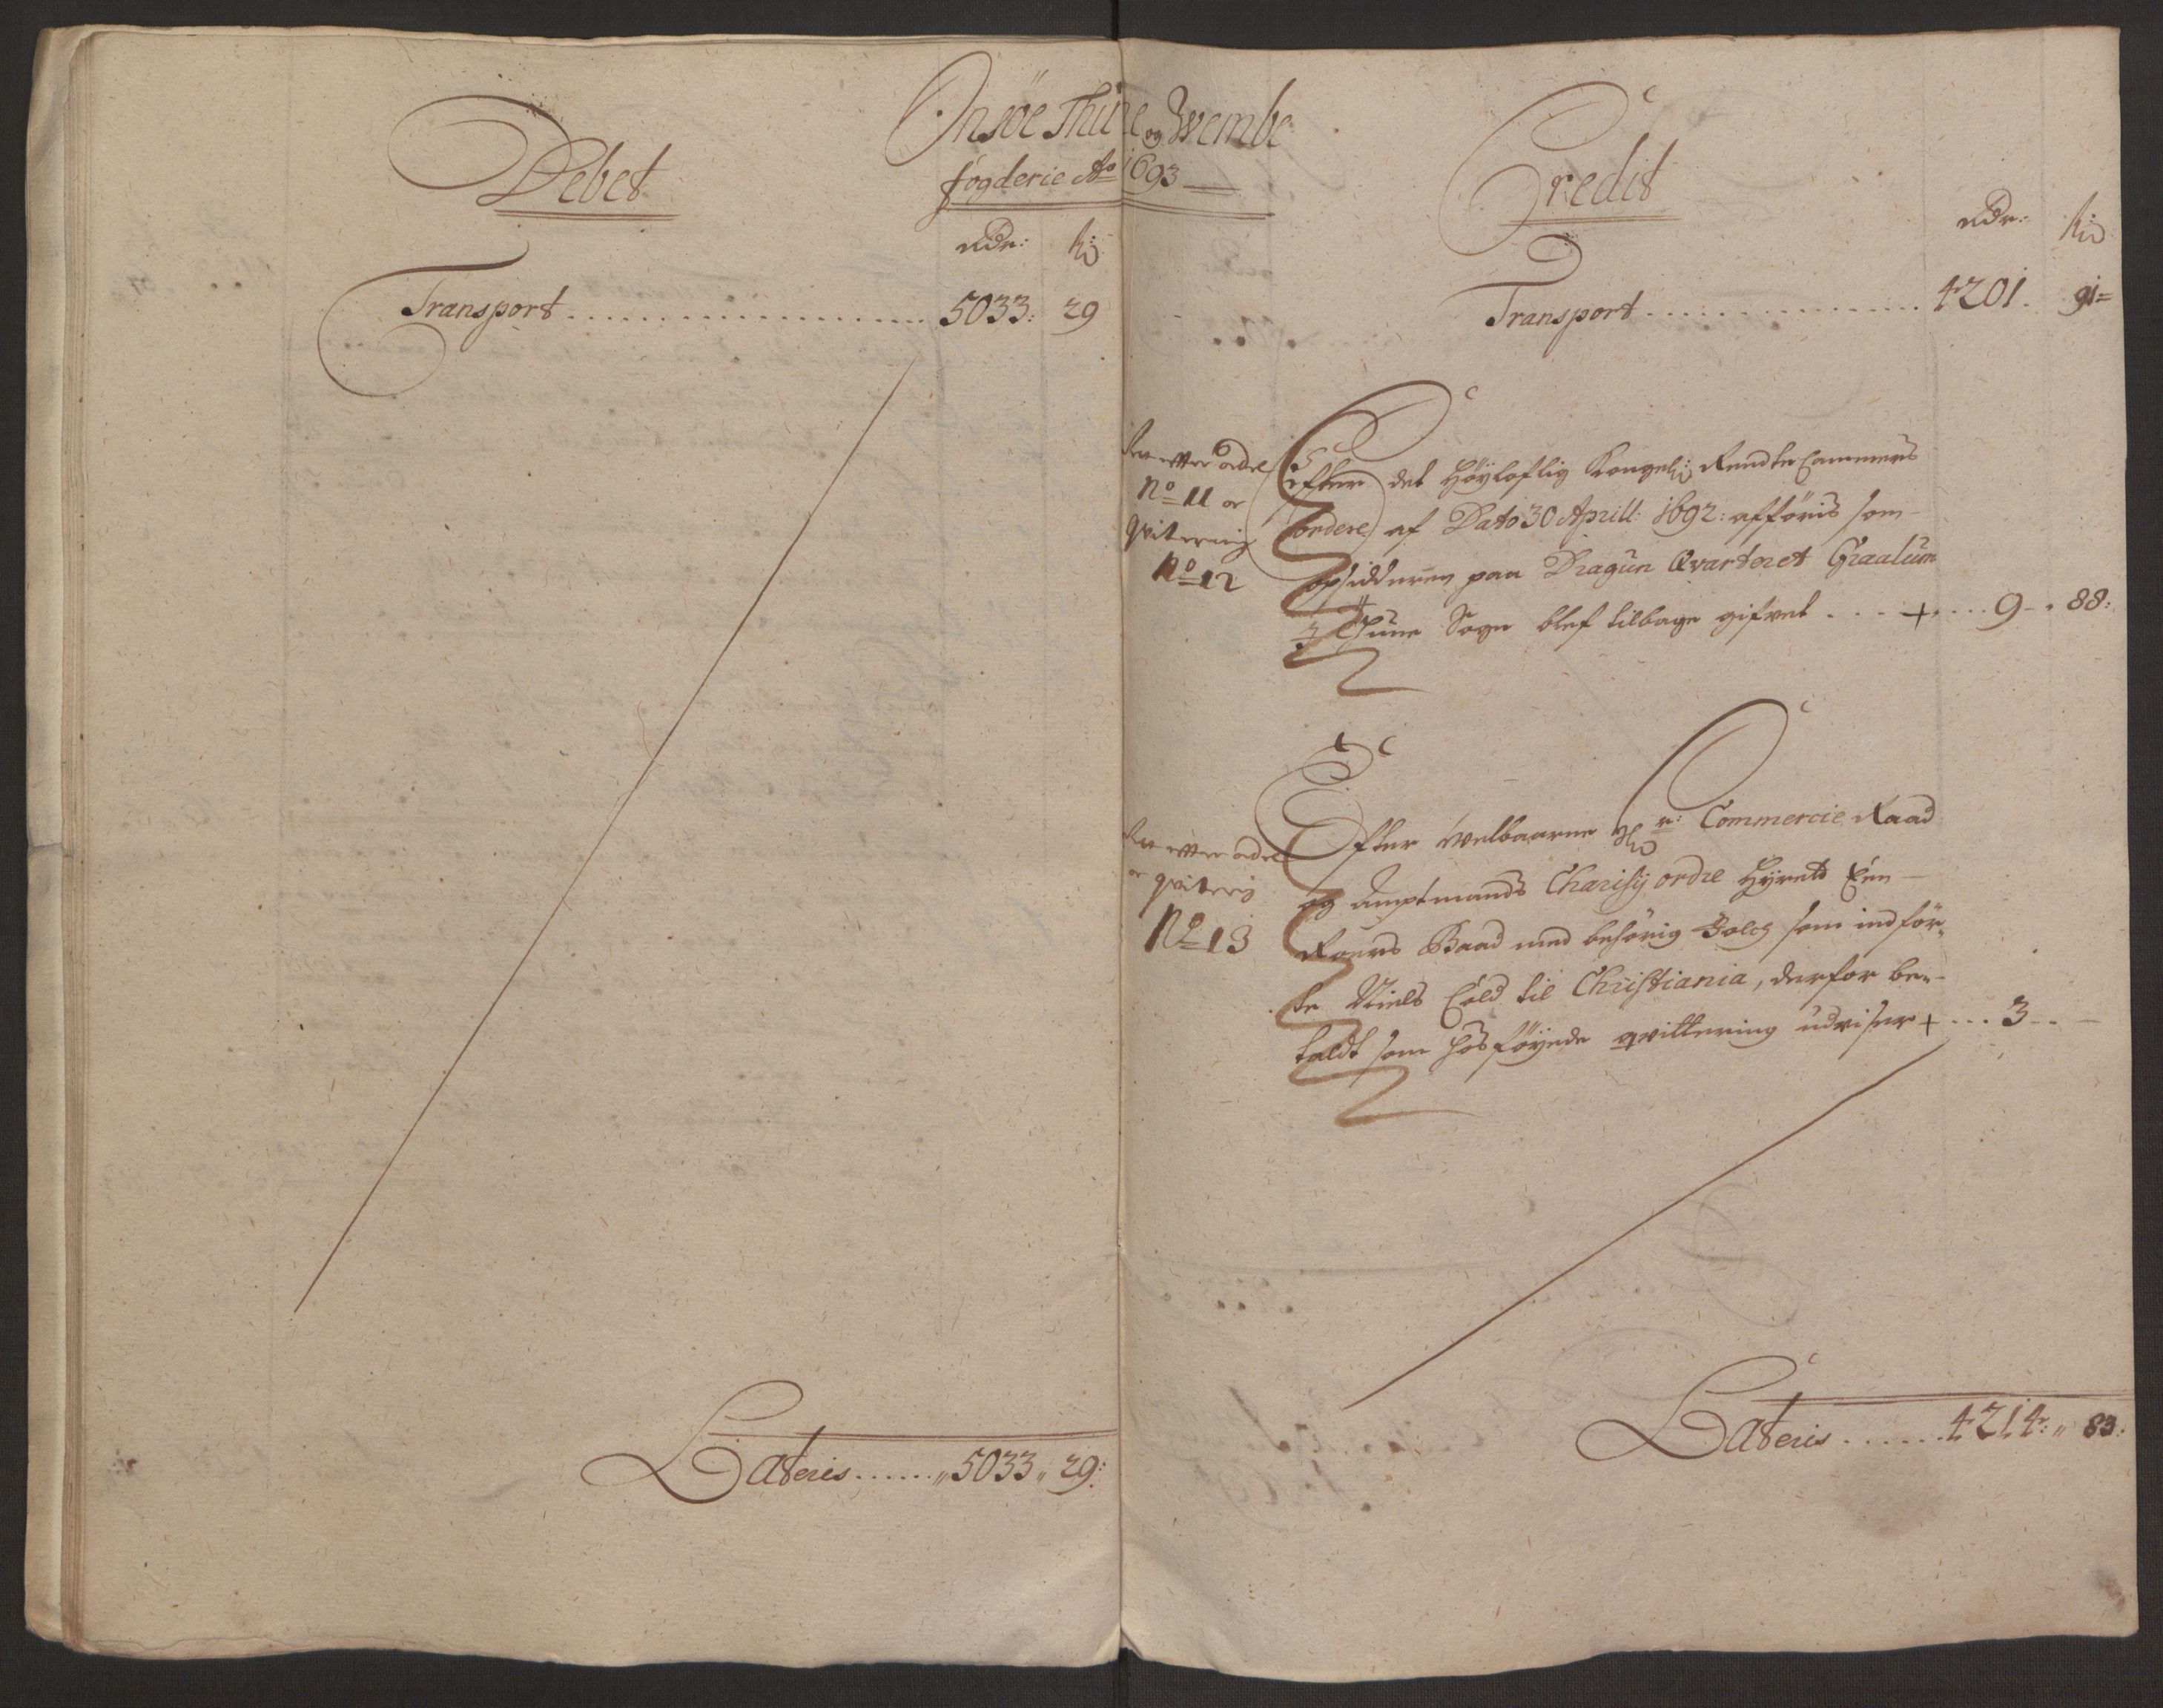 Onsöe Thune og Wembe
fogderie Ao 1693
Debet
Rdr: ß
Transport 5033: 29
Lateris 5033 29:
Credit
Rdr: ß
Transport 4201. 91=
No 11 or
qvitering
No 12
Efter det Höyloflig Kongel: Rendte Cammers
ordere af Dato 30 Aprill: 1692: afföris som
opsidderen paa Dragun Qvarteret Graalum
i Thune Sogn blef tilbage gifvet + 9 88:
or qviterig
No 13
Efter Welbaarne Hr: Commercie Raad
og Amptmands Charisij ordre Hyret Een
Roers Baad med behörig Folch som indför-
te Niels Cold til Christiania, derfor be-
taldt som hosföyede qvittering udviser + 3 -
Lateris 4214: 83: